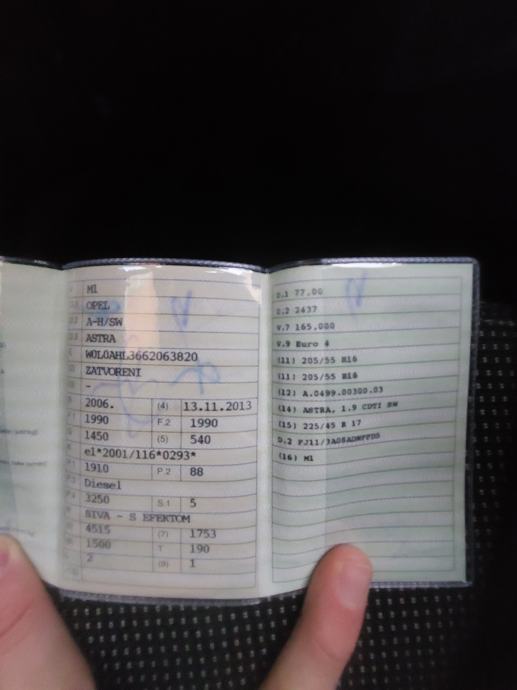 M1
OPEL
A-H/SW
ASTRA
W0L0AHL3662063820
ZATVORENI
-
2006. (4) 13.11.2013
1990 F.2 1990
1450 (5) 540
e1*2001/116*0293*
1910 P.2 88
Diesel
3250 S.1 5
SIVA - S EFEKTOM
4515 (7) 1753
1500 T 190
2 (8) 1
U.1 77,00
U.2 2437
V.7 165,000
V.9 Euro 4
(11) 205/55 R16
(11) 205/55 R16
(12) A.0499.00300.03
(14) ASTRA, 1.9 CDTI SW
(15) 225/45 R 17
D.2
(16) M1